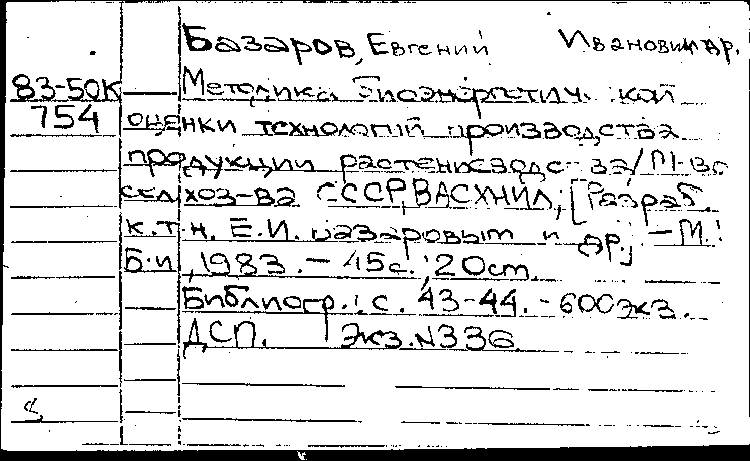 Базаров, Евгений Иванович и др.
83-50К Методика биоэнергетич. кой
754 оценки технологий производства
продукции растениеводс- ва / М-во
сел. хоз-ва СССР, ВАСХНИЛ; [Разраб.
к.т.н. Е.И. Базаровым и др.]. - М.:
Б.и., 1983. - 45с.; 20см.
Библиогр.: с. 43-44. - 600экз.
ДСП. Экз.N336